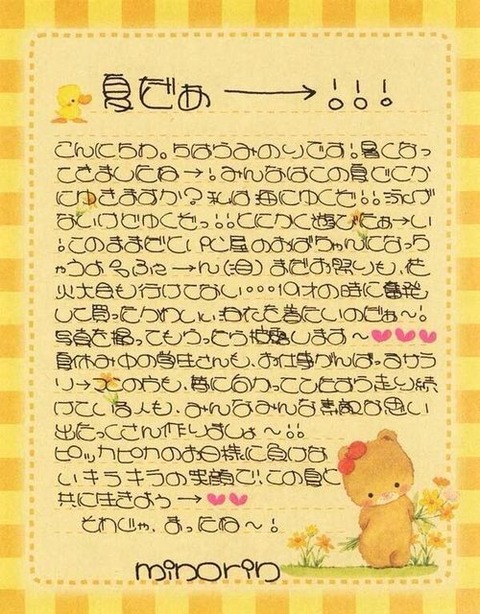 夏だぁ──→!!!
こんにちわ。ちはらみのりです!暑くなっ
てきましたね→!みんなはこの夏どこか
にゆきますか?私は海にゆくぞ!!泳げ
ないけどゆくぞっ!!とにかく遊びたぁ→い
!このままだとPC屋のおばちゃんになっち
ゃうよぅふに→ん(泪)まだお祭りも、花
火大会も行けてない・・・19才の時に奮発
して買ったかわいぃゆかたを着たいのだぁ〜!
写真を撮ってもらったら披露します〜♥♥♥
夏休み中の学生さんも、お仕事がんばるサラ
リ→マンの方も、夢に向かってひたすら走り続
けている人も、みんなみんな素敵な思い
出たっくさん作りましょ〜!!
ピッカピカのお日様に負けな
いキラキラの笑顔で、この夏と
共に生きよう→♥♥
それじゃ、まったね〜!
minorin